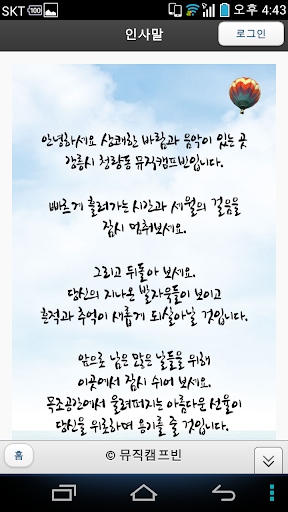 SKT 100 오후 4:43
인사말 로그인
안녕하세요 상쾌한 바람과 음악이 있는 곳
강릉시 청량동 뮤직캠프빈입니다.
빠르게 흘러가는 시간과 세월의 걸음을
잠시 멈춰보세요.
그리고 뒤돌아 보세요.
당신의 지나온 발자욱들이 보이고
흔적과 추억이 새롭게 되살아날 것입니다.
앞으로 남은 많은 날들을 위해
이곳에서 잠시 쉬어 보세요.
목조공간에서 울려퍼지는 아름다운 선율이
당신을 위로하며 용기를 줄 것입니다.
홈 © 뮤직캠프빈